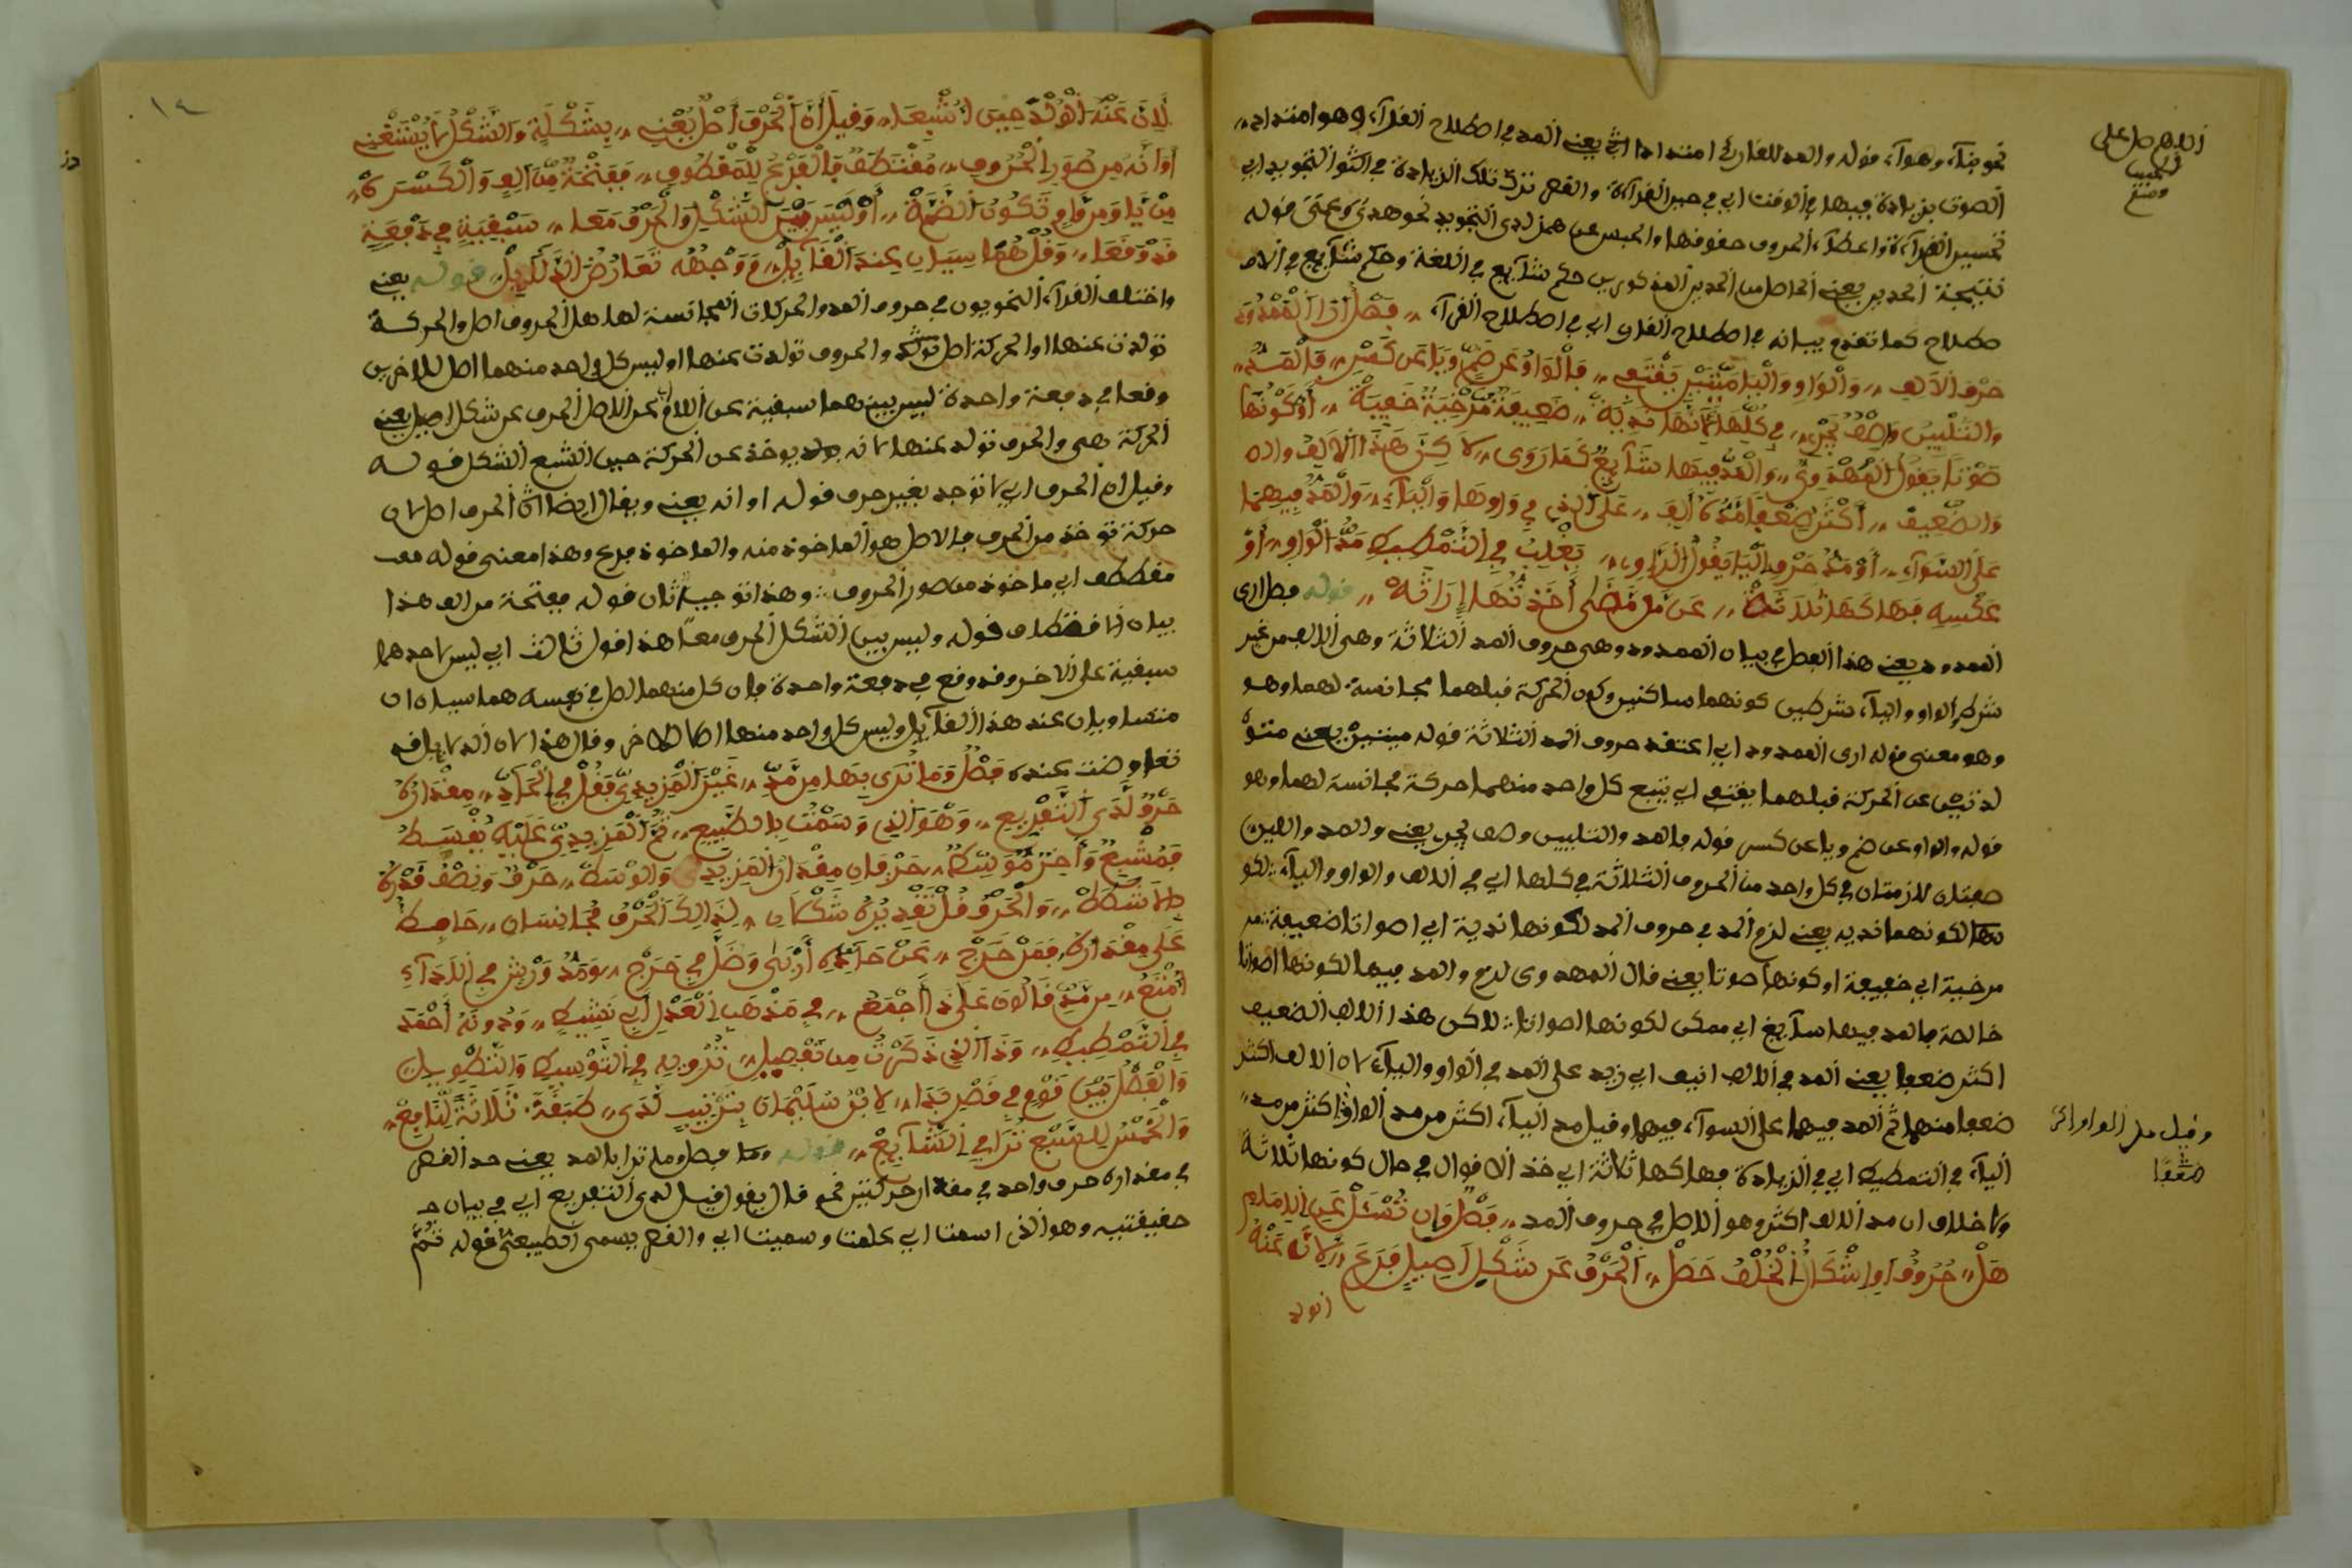 اللهم صل على
الحبيب
نحو جآء وهوآء، قوله والمد للقارئ امتدادا الخ يعني المد في اصطلاح القرآء، وهو امتداد
الصوت بزيادة فيها في الوقت اي في حين القرآءة والقصر ترك تلك الزيادة في التجويد اي
تحسين القرآءة واعطآء الحروف حقوقها والحبس عن همز لدى التجويد نحو هدى ومعنى قوله
نتيجة الحدين يعني الحاصل من الحدين المذكورين حكم شآيع في اللغة وحكم شآيع في الاص
صطلاح كما تقدم بيانه في اصطلاح القرآء اي في اصطلاح القرآء فصل ارى الممدود
حرف الالف والواو واليا ميتين يقتفي فالواو عن ضم ويا عن كسر فالمد
والتليين وصف يجري في كلها لكنها نديه ضعيفة مرخية خفية اوكونها
صوتا يقول المهدوي والمد فيها شآيع كما روى لاكن هذا الالف واله
والضعيف اكثر ضعفا مده انيف على الذي في واوها واليآء والمد فيهما
على السوآء او مد حرف اليا يقول الراوي يغلب في التمطيط مد الواو او
عكسه فهاكها ثلاثة عن من مضى اخذتها اراثه قوله فصل ارى
الممدود يعني هذا الفصل في بيان الممدود وهي حروف المد الثلاثة وهي الالف من غير
شرط والواو واليآء بشرطين كونهما ساكنين وكون الحركة قبلهما مجانسة لهما وهو
وهو معنى قوله ارى الممدود اي اعتقد حروف المد الثلاثة قوله ميتين يعني
عن الحركة قبلهما يقتفي اي يتبع كل واحد منهما حركة مجانسة لهما وهو
قوله والواو عن ضم ويا عن كسر قوله فالمد والتليين وصف يجري يعني والمد واللين
صفتان لازمتان في كل واحد من الحروف الثلاثة في كلها اي في الالف والواو واليآء لكو
نها لكونهما نديه يعني لزم المد في حروف المد لكونها ندية اي اصواتا ضعيفة
مرخية اي خفيفة اوكونها صوتا يعني قال المهدوي لزم والمد فيها لكونها اصواتا
خالصة فالمد فيها سآيغ اي ممكن لكونها اصواتا لاكن هذا الالف الضعيف
اكثر ضعفا يعني المد في الالف انيف اي زيد على المد في الواو واليآء لان الالف اكثر
ضعفا منهما ثم المد فيهما على السوآء فيهما وقيل مد اليآء اكثر من مد الواو او اكثر من مد
وقيل مد الواو اكثر
ضعفا
اليآء في التمطيط اي في الزيادة فهاكها ثلاثة اي خذ الاقوال في حال كونها ثلاثة
ولا خلاف ان مد الالف اكثر وهو الاصل في حروف المد فصل وان تسئل عن الامام
هل حروف او اشكال الخلف حصل الحرف عن شكل اصيل فرع لانه عنه
تولد
١٤
لان عنه تولد حين اشبعا وقيل ان الحرف اصل يغني بشكلة والشكل لا يستغني
او انه من صور الحروف مقتطف فالفرع للمقطوف ففتحة من الف والكسره
من يا ومن واو تكون الضمه او ليس بين الشكل والحرف معا سبقية في دفعة
قد وقعا وقل هما سيان عند القآئل ووجهه تعارض الدلآئل قوله يعني
واختلف القرآء النحويون في حروف المد والحركات المجانسة لها هل الحروف اصل والحركة
تولدت عنها او الحركة اصل والحروف تولدت عنها او ليس كل واحد منهما اصل للاخر بل
وقعا في دفعة واحدة ليس بينهما سبقية عن الاصل الحرف عن شكل اصيل يعني
الحركة هي والحرف تولد عنها لانه يوخذ عن الحركة حين اشبع الشكل قوله
وقيل ان الحرف اي لا توجد بغير حرف قوله او انه يعني ويقال ايضا ان الحرف اصل لان
حركة توخذ من الحرف فالاصل هو الماخوذ منه والماخوذ فرع وهذا معنى قوله
مقتطف اي ماخوذ من صور الحروف وهذا توجيه ثان قوله ففتحة من الف هذا
بيان الاقتطاف قوله وليس بين الشكل الحرف معا هذا قول ثالث اي ليس لاحدهما
سبقية على الاخر وقد وقع في دفعة واحدة فان كل منهما اصل في نفسه هما سيان
متساويان عند هذا القآئل وليس كل واحد منها اصلا للاخر وقال هذا لان الدلايل قد
تعارضت عنده فصل وما ترى بها من مد غير المزيدي فقل في الحد مقداره
حرف لدى التفريع وهو الذي وسمت بالطبيع ثم المزيدي عليه يقسط
فمشبع واخر موسط حرفان مقدار المزيد والوسط حرف ونصف قدره
بلا شطط والحرف قل تقديره شكلان لذالك الحرف مجانسان حافظ
على مقداره فمن خرج عن حده اربى وضل في حرج ومد ورش في الادآء
امنع من مد قالون على ذا اجمع في مذهب العدل اي نشيط ودونه احمد
في التمطيط وذا الذي ذكرت من تفصيل ترويه في التوسيط والتطويل
والفضل بين قوم في قصر بدا لابن سليمان بترتيب لدى ضبقة ثلاثة لنافع
والخمس للسبع ترا في الشآيع قوله فصل وما ترا بالمد يعني حد القصر
في مقداره حرف واحد في مقدار حركتين نحو قال يقول قيل لدى التفريع اي في بيان
حقيقتيه وهو الذي اسمت اي علمت وسميت اي والقصر يسمى الطبيعي قوله ثم